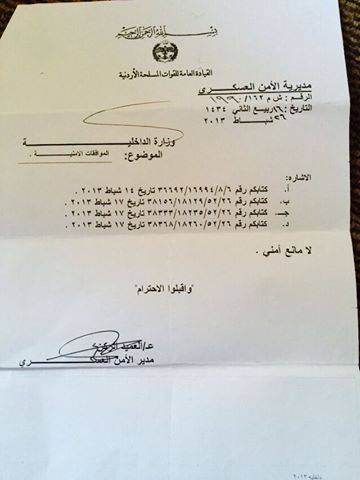 بسم الله الرحمن الرحيم
القيادة العامة للقوات المسلحة الأردنية
مديرية الأمن العسكري
الرقم : ش م ١٦٢/
التاريخ : ١٦ ربيع الثاني ١٤٣٤
٢٦ شباط ٢٠١٣
وزارة الداخلية
الموضوع: الموافقات الامنية .
الاشاره:
أ. كتابكم رقم ٣٦٦٩٢/١٦٩٩٤/٨/٦ تاريخ ١٤ شباط ٢٠١٣
ب. كتابكم رقم ٣٨١٥٦/١٨١٢٩/٥٢/٢٦ تاريخ ١٧ شباط ٢٠١٣
جـ. كتابكم رقم ٣٨٣٣٣/١٨٢٣٥/٥٢/٢٦ تاريخ ١٧ شباط ٢٠١٣
د. كتابكم رقم ٣٨٣٦٨/١٨٢٦٠/٥٢/٢٦ تاريخ ١٧ شباط ٢٠١٣
لا مانع أمني .
"واقبلوا الاحترام"
عـ/العميد الركن
مدير الأمن العسكري
داخليه ٢٠١٣